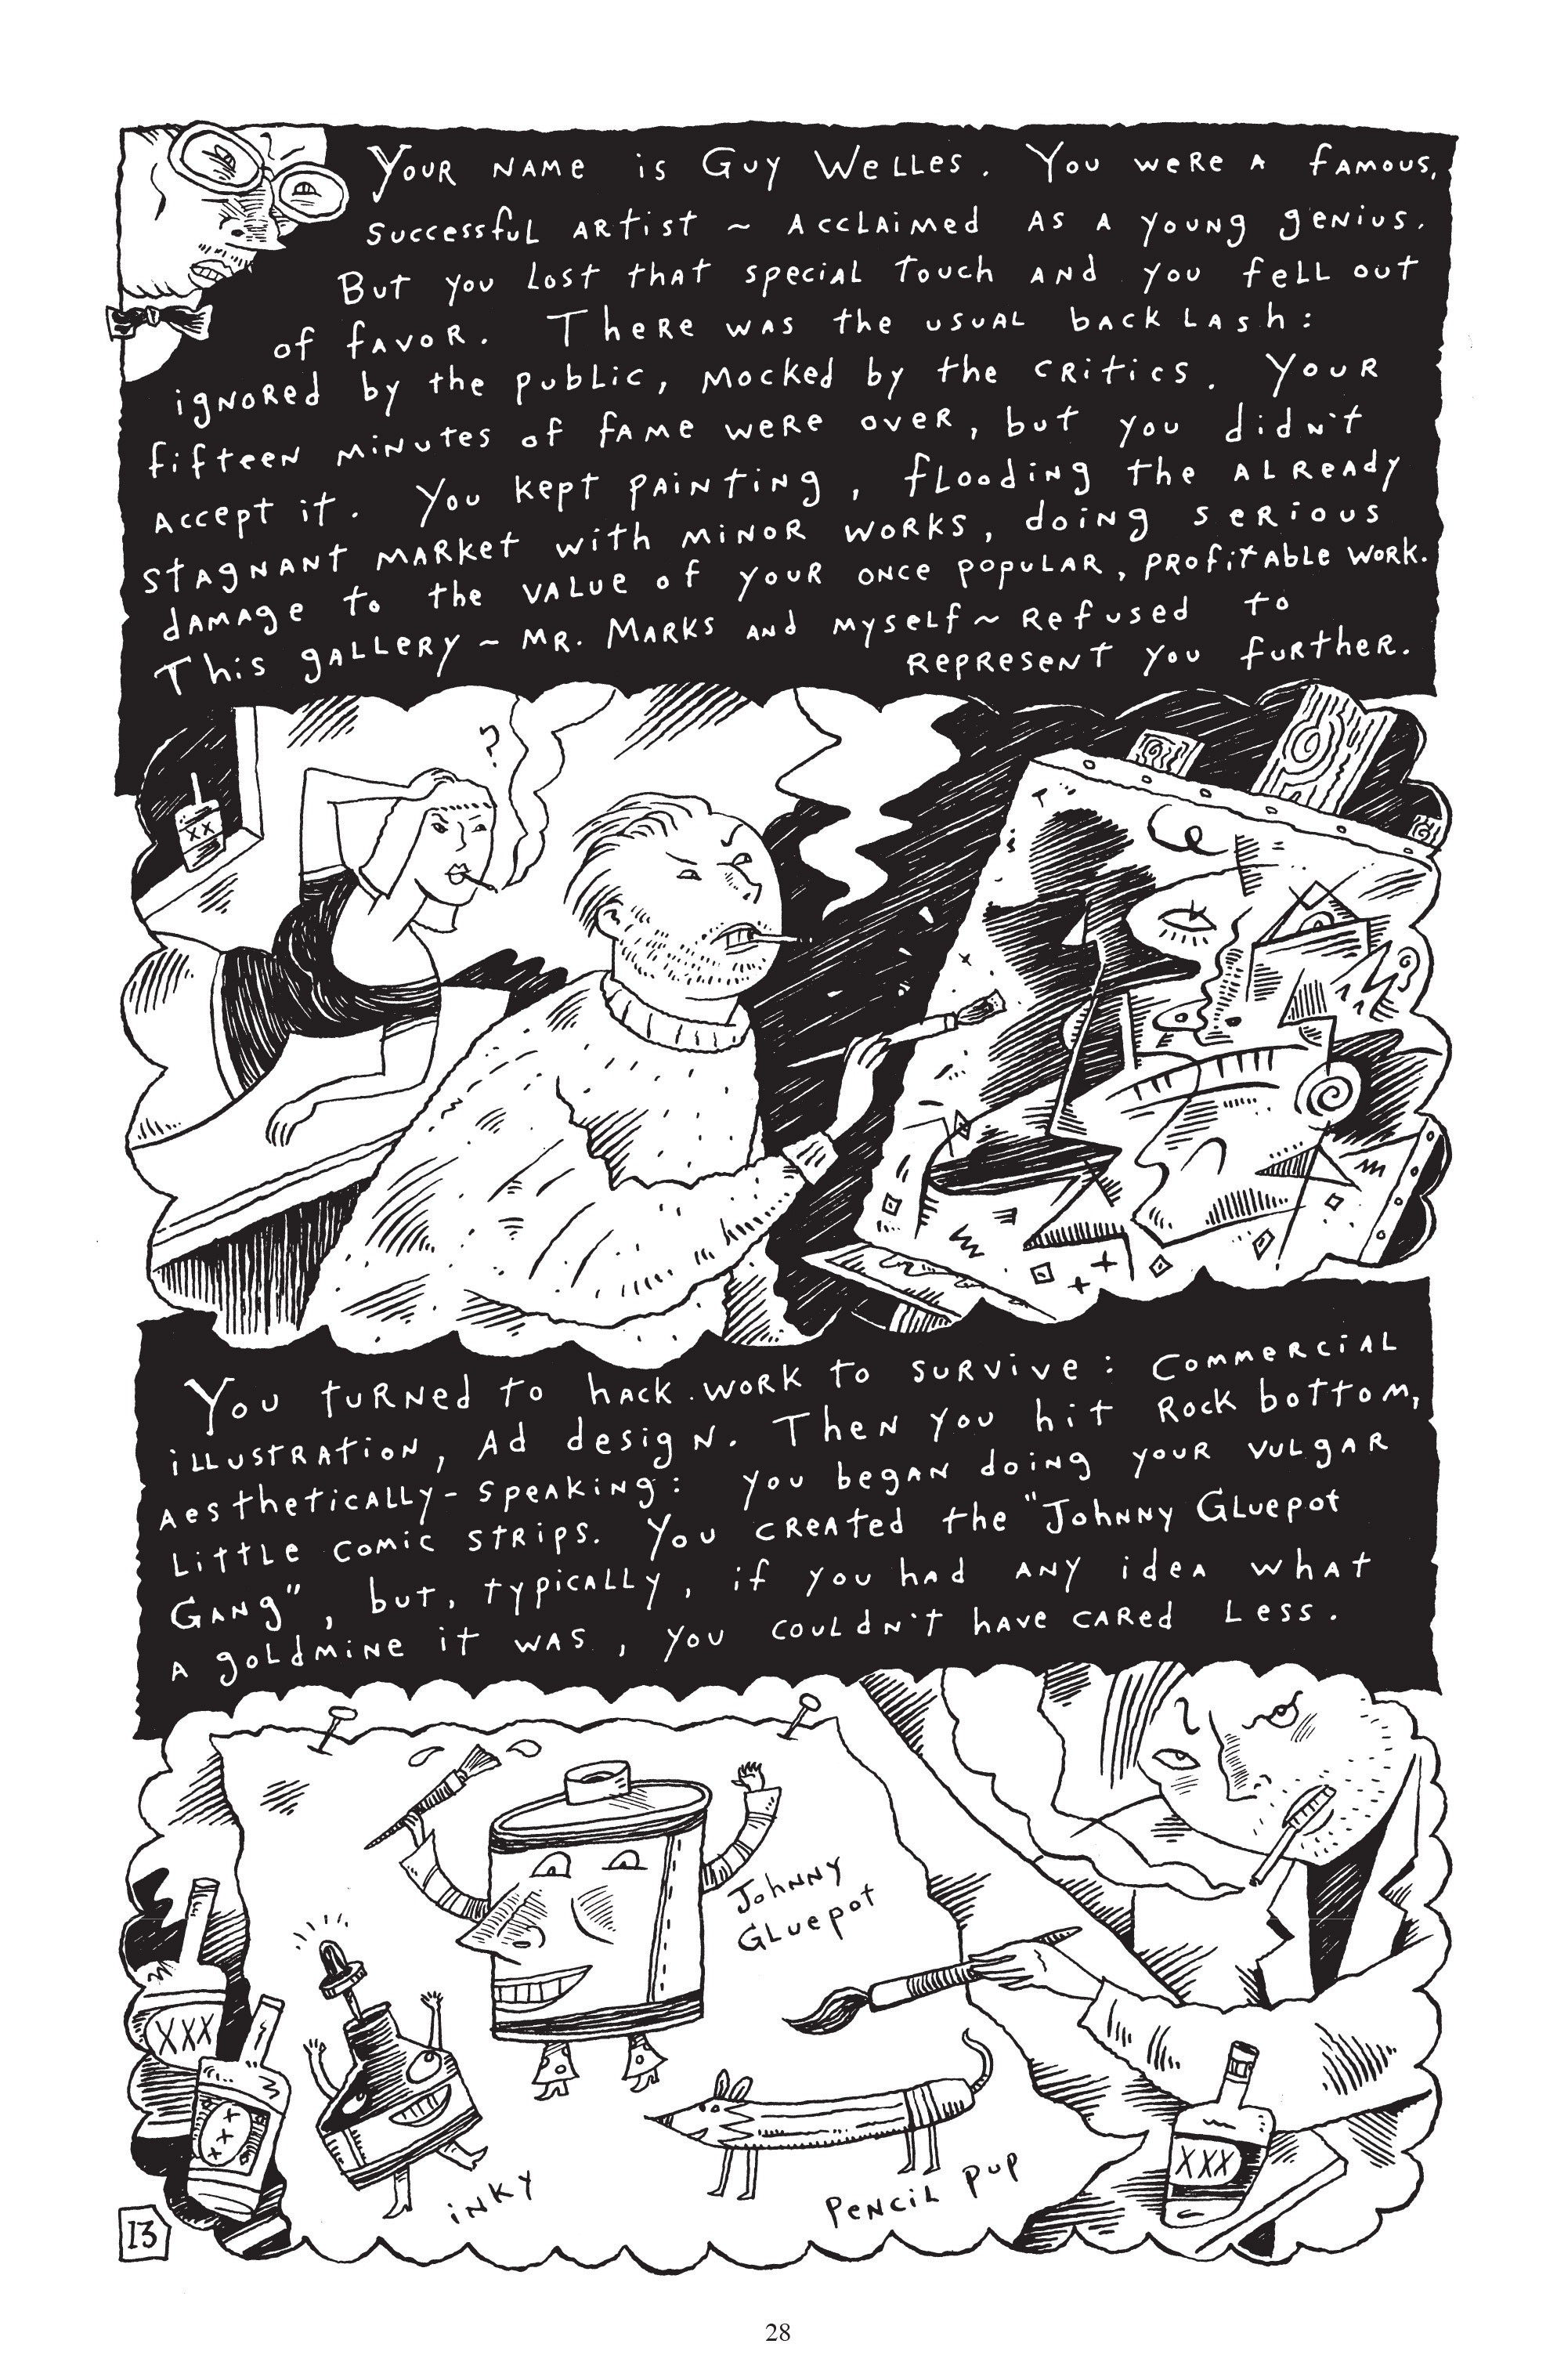 Your name is Guy Welles. You were a famous,
successful artist ~ acclaimed as a young genius.
But you lost that special touch and you fell out
of favor. There was the usual backlash:
ignored by the public, mocked by the critics. Your
fifteen minutes of fame were over, but you didn't
accept it. You kept painting, flooding the already
stagnant market with minor works, doing serious
damage to the value of your once popular, profitable work.
This gallery ~ Mr. Marks and myself ~ refused to
represent you further.
?
XX
You turned to hack work to survive: commercial
illustration, ad design. Then you hit rock bottom,
aesthetically-speaking: you began doing your vulgar
little comic strips. You created the "Johnny Gluepot
Gang", but, typically, if you had any idea what
a goldmine it was, you couldn't have cared less.
Johnny
Gluepot
XXX
XXX
XXX
inky
pencil pup
13
28